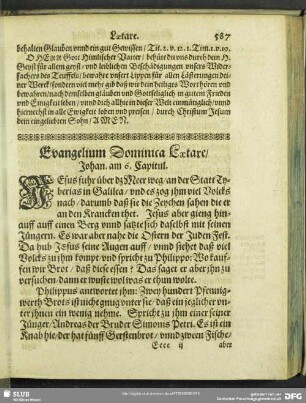 Lætare. 587
behalten Glauben vnnd ein gut Gewissen/ Tit. 2. v. 12. 1. Tim. 1. v. 19.
O HErr Gott Himlischer Vatter/ behüte du vns durch dein H.
Geyst für allen geyst- vnd leiblichen Beschädigungen vnsers Wider-
sachers des Teuffels/ bewahre vnsere Lippen für allen Lästerungen dei-
ner Werck/ sondern viel mehr gib daß wir dein heiliges Wort hören vnd
bewahren/ nach demselben glauben vnd Gottseliglich in gutem Frieden
vnd Einigkeit leben/ vnnd dich allhie in dieser Welt einmütiglich/ vnnd
hiernechst in alle Ewigkeit loben vnd preisen/ durch Christum Jesum
dein eingeliebten Sohn/ AMEN.
Evangelium Dominica Lætare/
Johan. am 6. Capitul.
JEsus fuhr über dz Meer weg/ an der Statt Ty-
berias in Galilea/ vnd es zog ihm viel Volcks
nach/ darumb daß sie die Zeychen sahen die er
an den Krancken thet. Jesus aber gieng hin-
auff auff einen Berg vnnd satzte sich daselbst mit seinen
Jüngern. Es war aber nahe die Ostern der Juden Fest.
Da hub JEsus seine Augen auff/ vnnd siehet daß viel
Volcks zu jhm kompt vnd spricht zu Philippo: Wo kauf-
fen wir Brot/ daß diese essen? Das saget er aber jhn zu
versuchen/ dann er wuste wol was er thun wolte.
Philippus antwortet jhm: Zwey hundert Pfennig-
werth Brots ist nicht gnug vnter sie/ daß ein jeglicher vn-
ter jhnen ein wenig nehme. Spricht zu jhm einer seiner
Jünger/ Andreas der Bruder Simonis Petri. Es ist ein
Knab hie/ der hat fünff Gerstenbrot/ vnnd zween Fische/
Eeee ij aber
SLUB